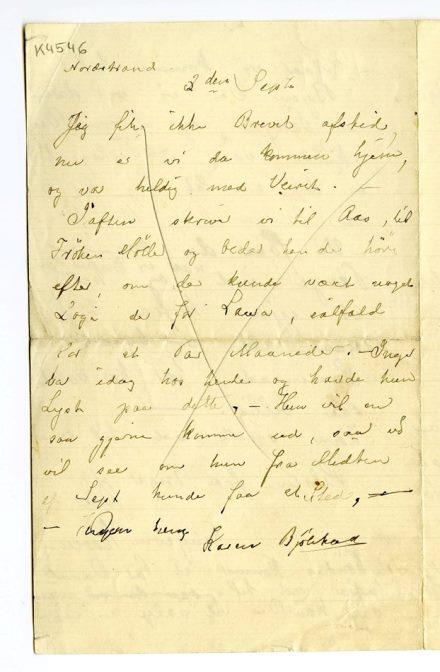 K4546
Nordstrand
2den Sept
Jeg fik ikke Brevet afsted,
nu er vi da kommen hjem,
og var heldig med Veiret. –
Iaften skriver vi til Aas, til
Frøken Møller og beder hende høre
efter, om der kunde vært noget
Logi der for Laura, ialfald
for et Par Maaneder. – Inger
var idag hos hende og havde hun
Lyst paa dette, – Hun vil en
saa gjerne komme ud, saa vi
vil see om hun fra Midten
af Sept kunde faa et Sted, –
Karen Bjølstad